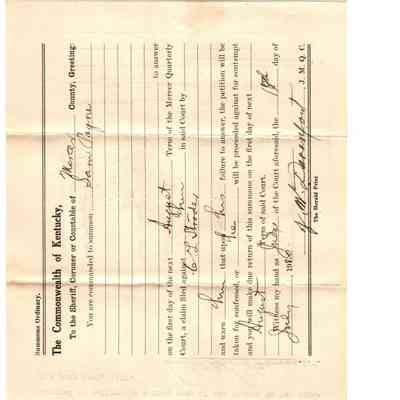 Summons Ordinary.
The Commonwealth of Kentucky,
To the Sheriff, Coroner or Constable of Mercer County, Greeting:
You are commanded to summon Sam Payne
to answer
on the first day of the next August Term of the Mercer Quarterly
Court, a claim filed against him in said Court by
C L Rhodes
and warn him that upon his failure to answer, the petition will be
taken for confessed, or he will be proceeded against for contempt
and you will make due return of this summons on the first day of next
August Term of said Court.
Witness my hand as Judge of the Court aforesaid, the day of
July 191
Davenport J. M. Q. C.
The Herald Print